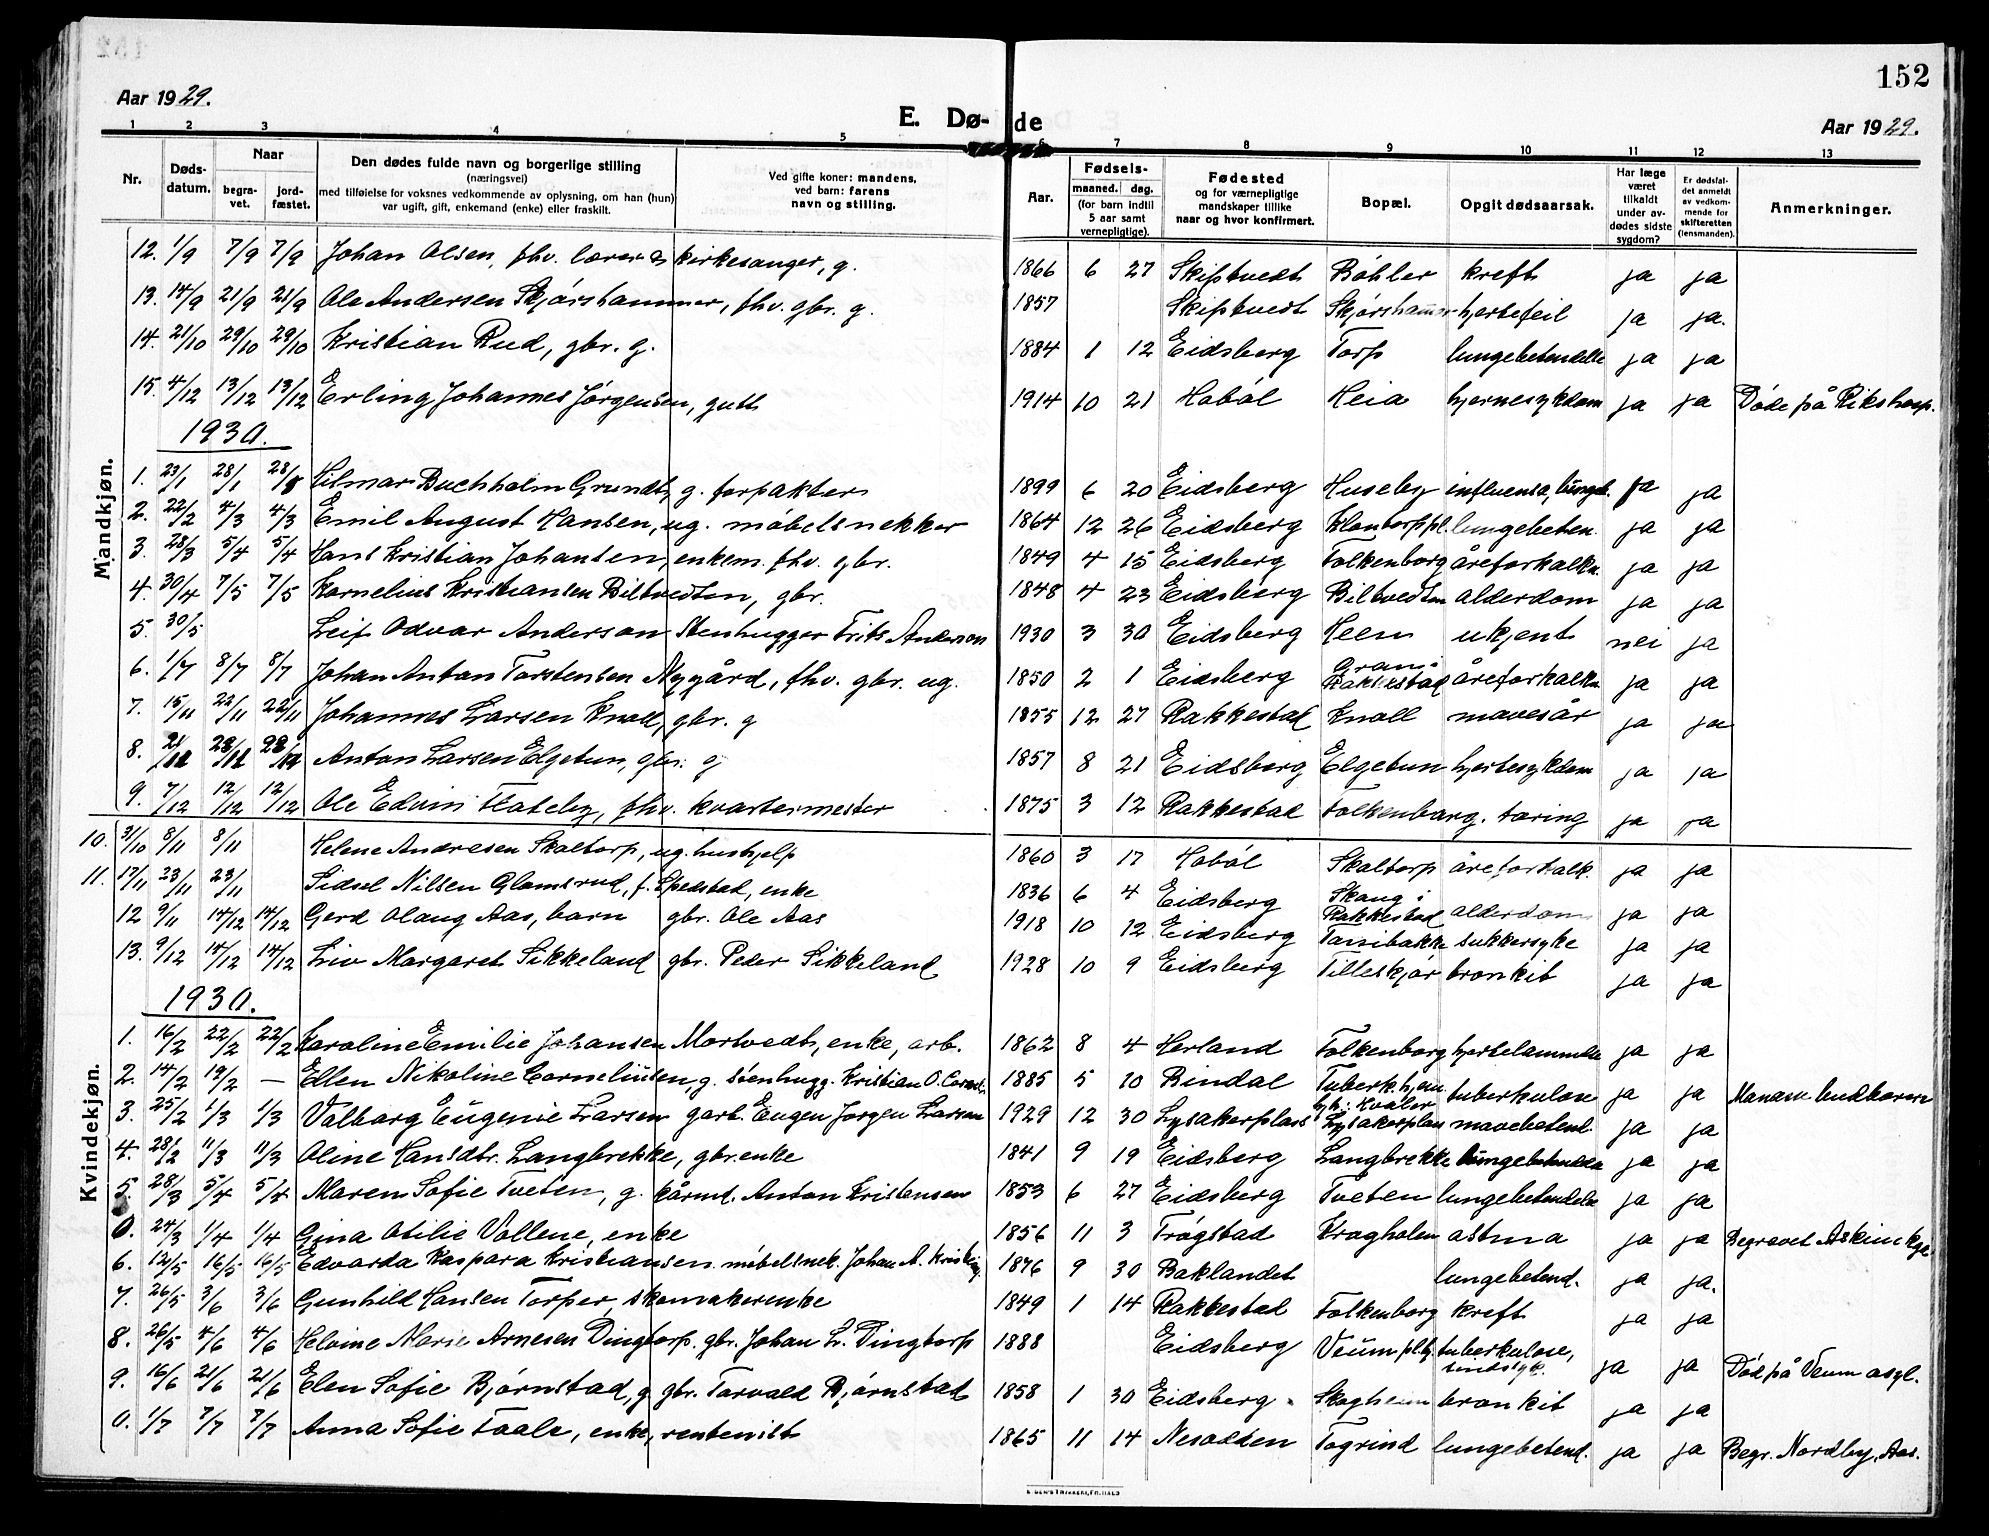 152
Aar 1929.
E. Dø- de
Aar 1929.
1 2 3 4 5 6 7 8 9 10 11 12 13
Nr. Døds-datum. Naar begra-vet. jord-fæstet. Den dødes fulde navn og borgerlige stilling (næringsvei) med tilføielse for voksnes vedkommende av oplysning, om han (hun) var ugift, gift, enkemand (enke) eller fraskilt. Ved gifte koner: mandens, ved barn: farens navn og stilling. Aar. Fødsels- maaned. dag. (for barn indtil 5 aar samt vernepligtige). Fødested og for værnepligtige mandskaper tillike naar og hvor konfirmert. Bopæl. Opgit dødsaarsak. Har læge været tilkaldt under av-dødes sidste sygdom? Er dødsfal-det anmeldt av vedkom-mende for skifteretten (lensmanden). Anmerkninger.
Mandkjøn.
12. 1/9 7/9 7/9 Johan Olsen, fhv. lærer & kirkesanger, g. 1866 6 27 Skiptvedt Bøhler kreft ja ja
13. 14/9 21/9 21/9 Ole Andersen Skjørshammer, fhv. gbr. g. 1857 Skiptvedt Skjørshammer hjertefeil ja ja.
14. 21/10 29/10 29/10 Kristian Rud, gbr. g. 1884 1 12 Eidsberg Torp lungebetendelse ja ja
15. 4/12 13/12 13/12 Erling Johannes Jørgensen, gutt 1914 10 21 Hobøl Heia hjernesykdom ja ja Døde på Rikshosp.
1930.
1. 23/1 28/1 28/1 Hilmar Buchholm Grundt, g. forpakter 1899 6 20 Eidsberg Huseby influensa, lungeb. ja ja
2. 22/2 4/3 4/3 Emil August Hansen, ug. møbelsnekker 1864 12 26 Eidsberg Klontorppl. lungebeten. ja ja
3. 28/3 5/4 5/4 Hans Kristian Johansen, enkem. fhv. gbr. 1849 4 15 Eidsberg Folkenborg åreforkalkn. ja ja
4. 30/4 7/5 7/5 Kornelius Kristiansen Biltvedten, gbr. 1848 4 23 Eidsberg Biltvedten alderdom ja ja
5. 30/5 Leif Odvar Anderson Stenhugger Frits Anderson 1930 3 30 Eidsberg Heen ukjent nei ja
6. 1/7 8/7 8/7 Johan Anton Torstensen Nygård, fhv. gbr. ug. 1850 2 1 Eidsberg Gran i Rakkestad åreforkalkn ja ja
7. 15/11 22/11 22/11 Johannes Larsen Knoll, gbr. g 1855 12 27 Rakkestad Knoll mavesår ja ja
8. 21/11 28/11 28/11 Anton Larsen Elgetun, gbr. g 1857 8 21 Eidsberg Elgetun hjertesykdom ja ja
9. 7/12 12/12 12/12 Ole Edvin Flateby, fhv. kvartermester 1875 3 12 Rakkestad Folkenborg. tæring ja ja
Kvindekjøn.
10. 31/10 8/11 8/11 Helene Andresen Skaltorp, ug. hushjelp 1860 3 17 Hobøl Skaltorp åreforkalk. ja ja
11. 17/11 23/11 23/11 Sidsel Nilsen Glomsrud, f. Spedstad, enke 1836 6 4 Eidsberg Skaug i Rakkestad alderdom ja ja
12 9/11 14/12 14/12 Gerd Olaug Aas, barn gbr. Ole Aas 1918 10 12 Eidsberg Tansibakke sukkersyke ja ja
13. 9/12 14/12 14/12 Liv Margaret Sikkeland gbr. Peder Sikkeland 1928 10 9 Eidsberg Tilleskjør bronkit ja ja
1930.
1. 16/2 22/2 22/2 Karoline Emilie Johansen Mortvedt, enke, arb. 1862 8 4 Herland Folkenborg hjertelammelse ja ja
2. 14/2 19/2 — Ellen Nikoline Corneliusen, g. stenhugg. Kristian O. Cornel. 1885 5 10 Bindal Tuberk.hjem tuberkulose ja ja
3. 25/2 1/3 1/3 Valborg Eugenie Larsen garb. Eugen Jørgen Larsen 1929 12 30 Lysakerplass Lysakerplass mavebetend. ja ja
4. 28/2 11/3 11/3 Oline Hansdtr. Langbrekke, gbr.enke 1841 9 19 Eidsberg Langbrekke lungebetendelse ja ja
5. 28/3 5/4 5/4 Maren Sofie Tveten, g. kårmd. Anton Kristensen 1853 6 27 Eidsberg Tveten lungebetendelse ja ja
0. 24/3 1/4 1/4 Gina Otilie Vollene, enke 1856 11 3 Trøgstad Kragholen astma ja ja Begravet Askim kge.
6. 12/5 16/5 16/5 Edvarda Kaspara Kristiansen møbelsnek. Johan A. 1876 9 30 Baklandet lungebetend. ja ja.
7. 26/5 3/6 3/6 Gunhild Hansen Torper, skomakerenke 1849 1 14 Rakkestad Folkenborg kreft ja ja
8. 26/5 4/6 4/6 Helvine Marie Arnesen Dingtorp. gbr. Johan Dingtorp 1888 Eidsberg Veum tuberkulose, sindssyk. ja ja Død på Veum asyl.
9. 16/6 21/6 21/6 Elen Sofie Bjørnstad, g gbr. Torvald Bjørnstad 1858 1 30 Eidsberg Skogheim bronkit ja ja
0. 1/7 7/7 7/7 Anna Sofie Faale, enke, rentenist 1865 11 14 Nesodden Togrind lungebetend. ja ja Begr. Nordby, Aas.